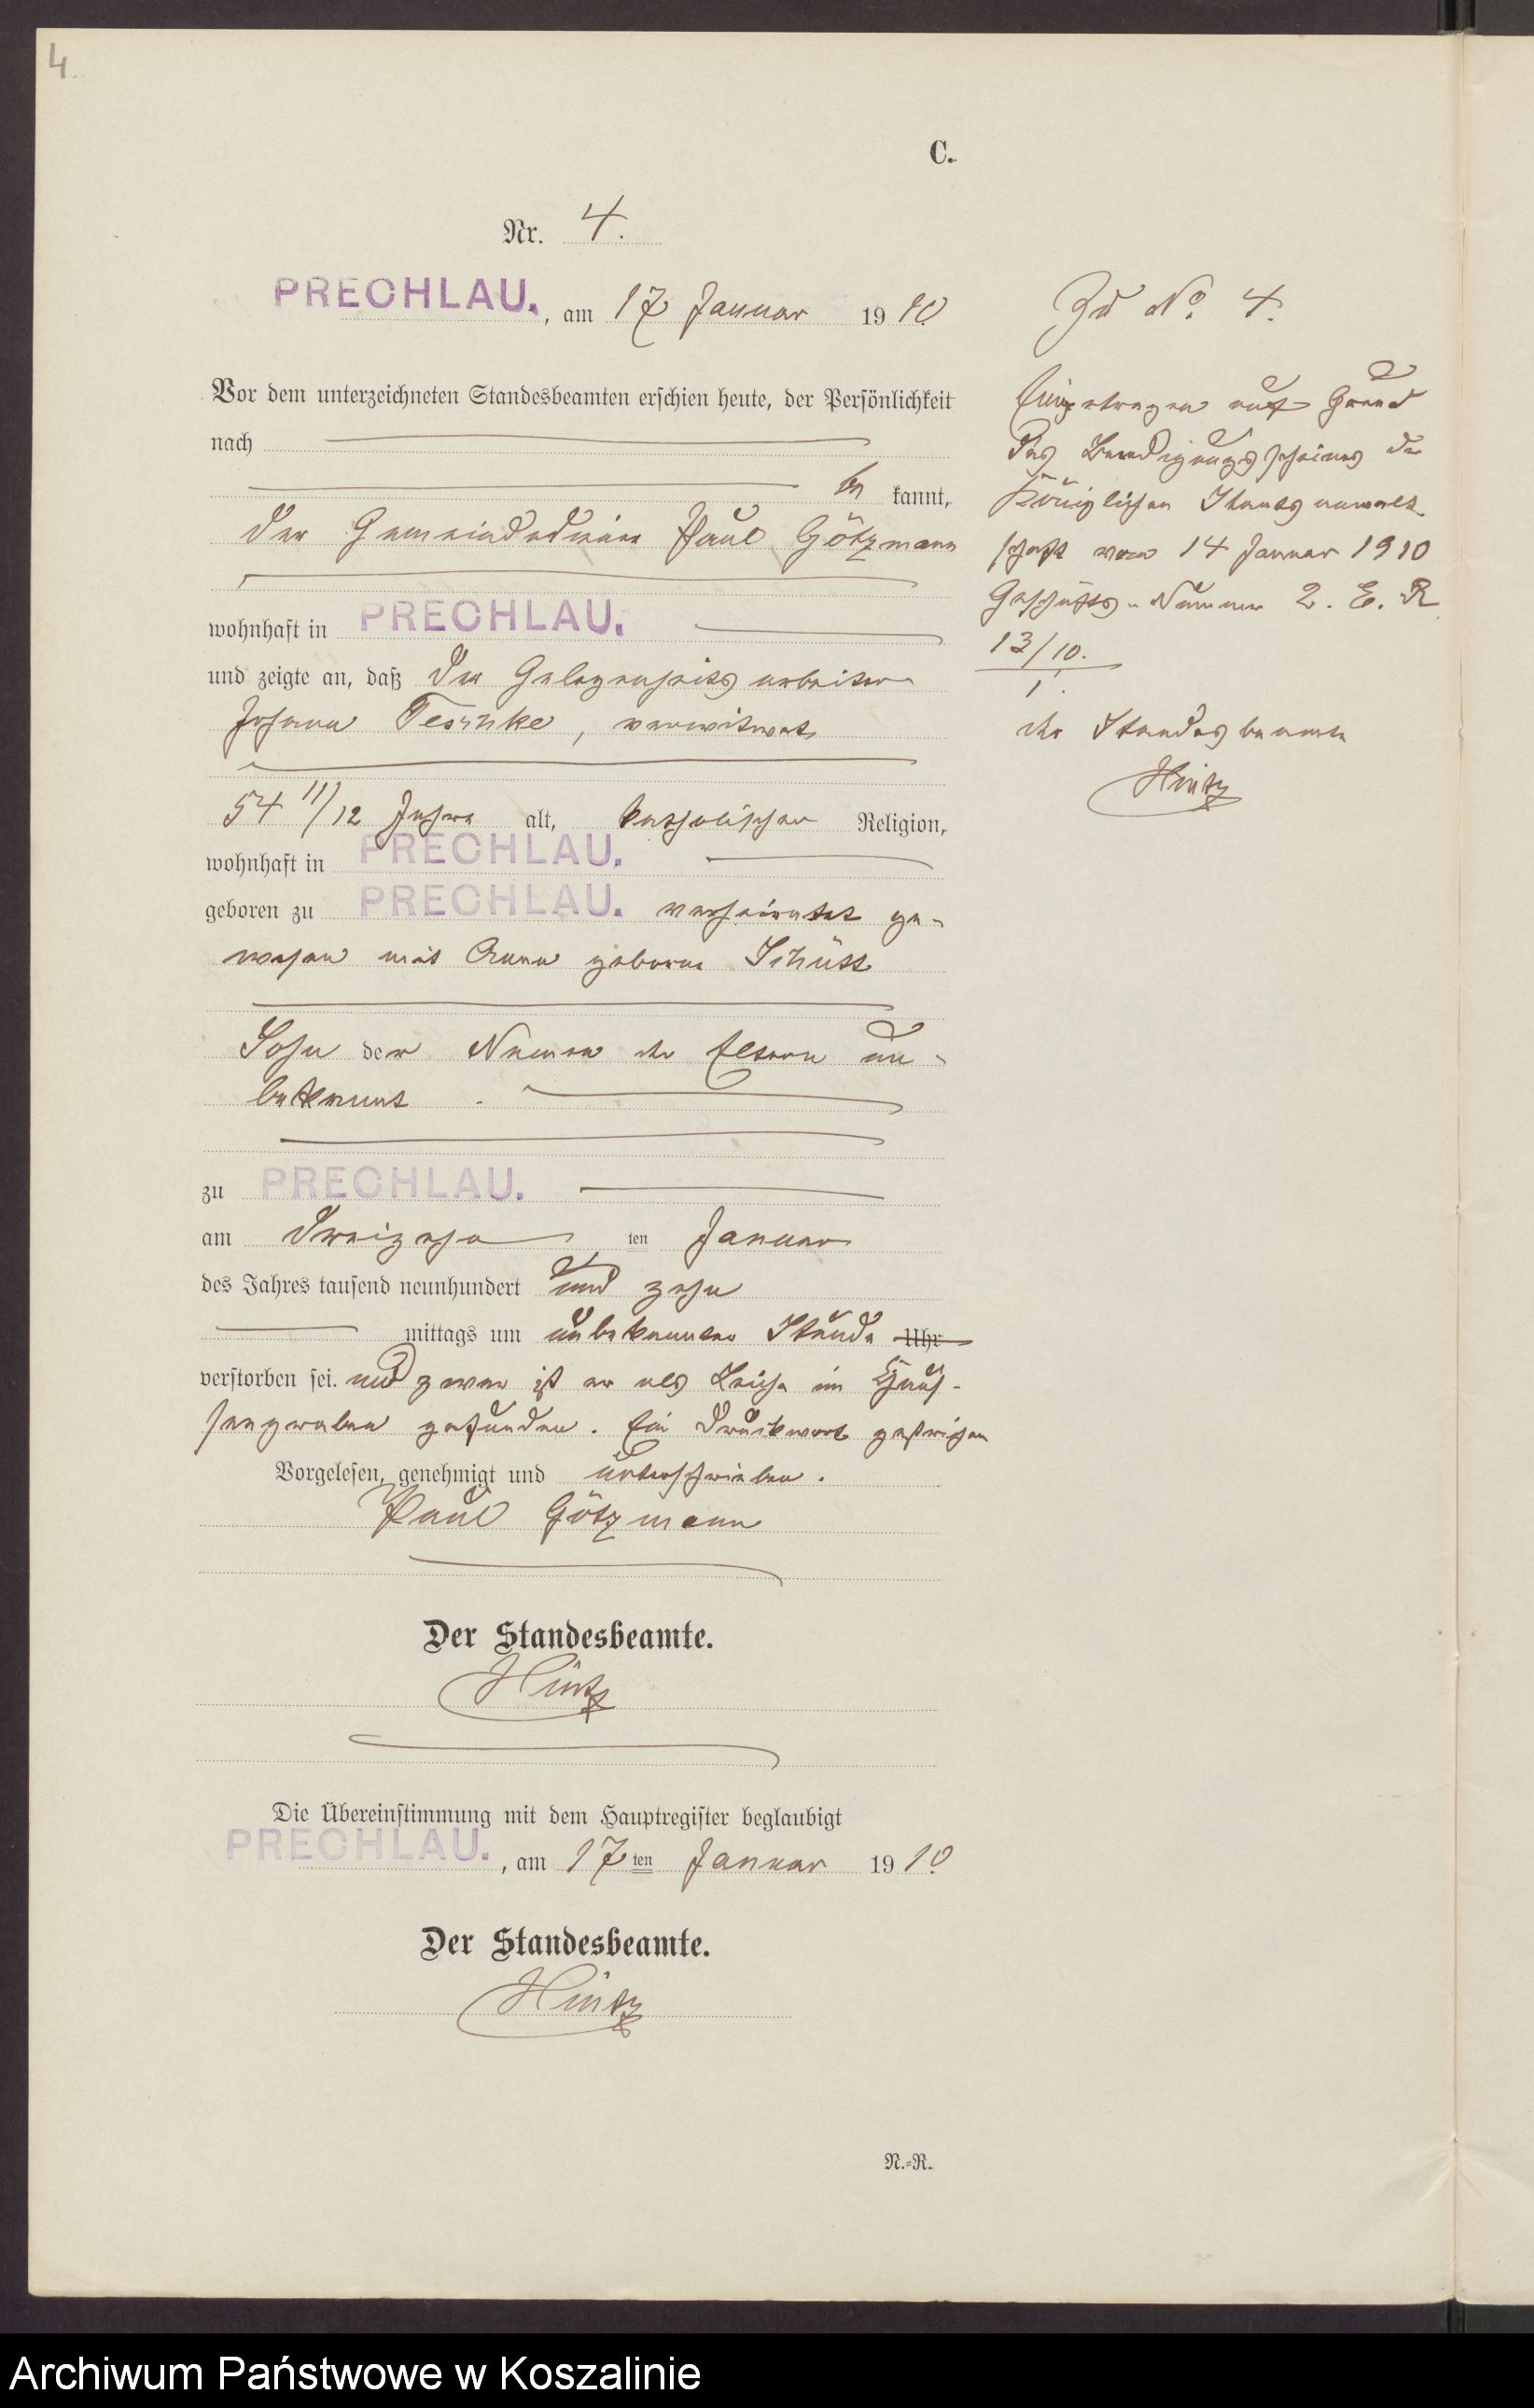 4.
C.
Nr. 4.
PRECHLAU. , am 17 Januar 1910.
Vor dem unterzeichneten Standesbeamten erschien heute, der Persönlichkeit
nach
be kannt,
der Gemeindediener Paul Götzmann
wohnhaft in PRECHLAU.
und zeigte an, daß der Gelegenheitsarbeiter
Johann Teschke, verwitwet
54 11/12 Jahre alt, katholischer Religion,
wohnhaft in PRECHLAU.
geboren zu PRECHLAU. verheiratet ge-
wesen mit Anna geborene Schütt
Sohn der Namen der Eltern un-
bekannt.
zu PRECHLAU.
am dreizehn ten Januar
des Jahres tausend neunhundert und zehn
mittags um unbekannter Stunde Uhr
verstorben sei. und zwar ist er als Leiche im
graben gefunden. Ein Druckwort gestrichen
Vorgelesen, genehmigt und unterschrieben.
Paul Götzmann
Der Standesbeamte.
Hintz
Die Übereinstimmung mit dem Hauptregister beglaubigt
PRECHLAU. , am 17ten Januar 1910.
Der Standesbeamte.
Hintz
N.=R.
Zu No. 4.
Eingetragen auf Grund
des Beerdigungsscheines der
Königlichen Staatsanwalt
schaft vom 14 Januar 1910
Geschäfts-Nummer 2. E. R
13/10.
1.
der Standesbeamte
Hintz
Archiwum Państwowe w Koszalinie